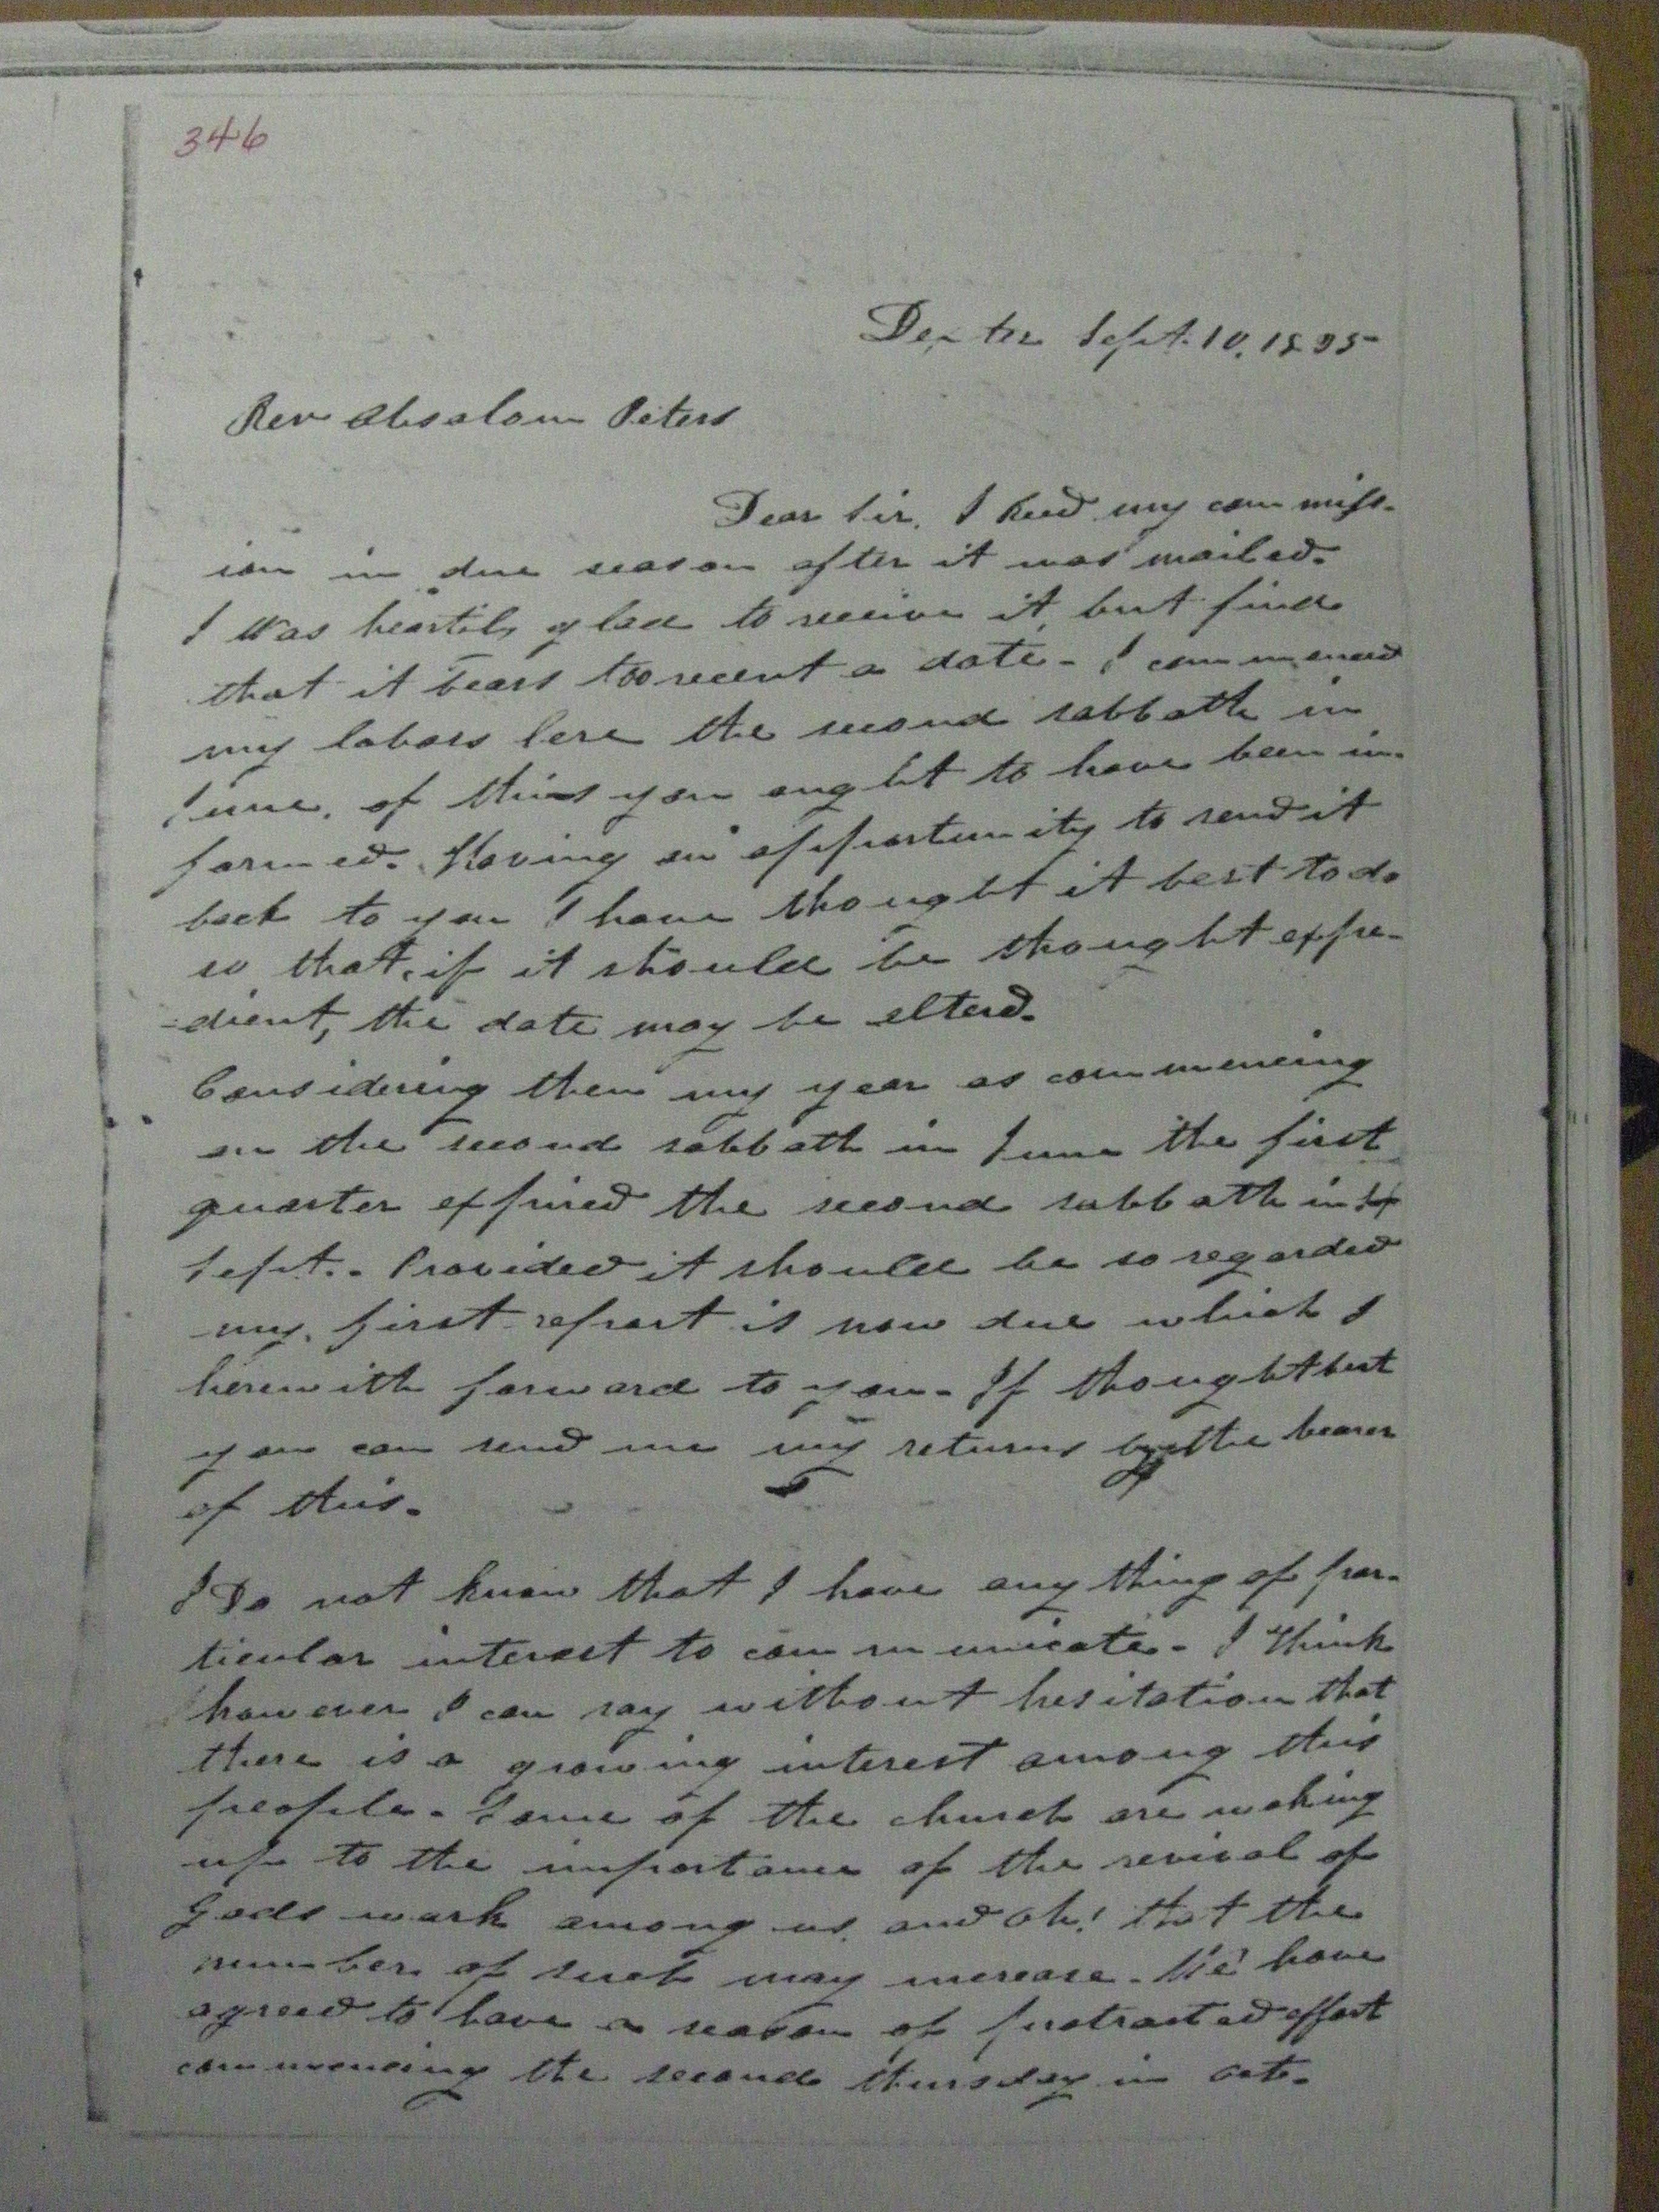 346
Dexter Sept. 10, 1835
Rev Absalom Peters
Dear Sir, I Recd my commiss-
ion in due season after it was mailed.
I was heartily glad to receive it, but find
that it bears too recent a date - I commenced
my labors here the second sabbath in
June, of this you ought to have been in-
formed. Having an opportunity to send it
back to you I have thought it best to do
so that, if it should be thought expe-
-dient, the date may be alterd.
Considering then my year as commencing
on the second sabbath in June the first
quarter expired the second sabbath in
Sept.. Provided it should be so regarded
my first report is now due which I
herewith forward to you - If thought best
you can send me my returns by the bearer
of this.
I Do not know that I have any thing of par-
ticular interest to communicate - I Think
however I can say without hesitation that
there is a growing interest among this
people - Some of the church are waking
up to the importance of the revival of
Gods work among us, and oh! that the
number of such may increase - We have
agreed to have a season of protracted effort
commencing the second thursday in Oct.